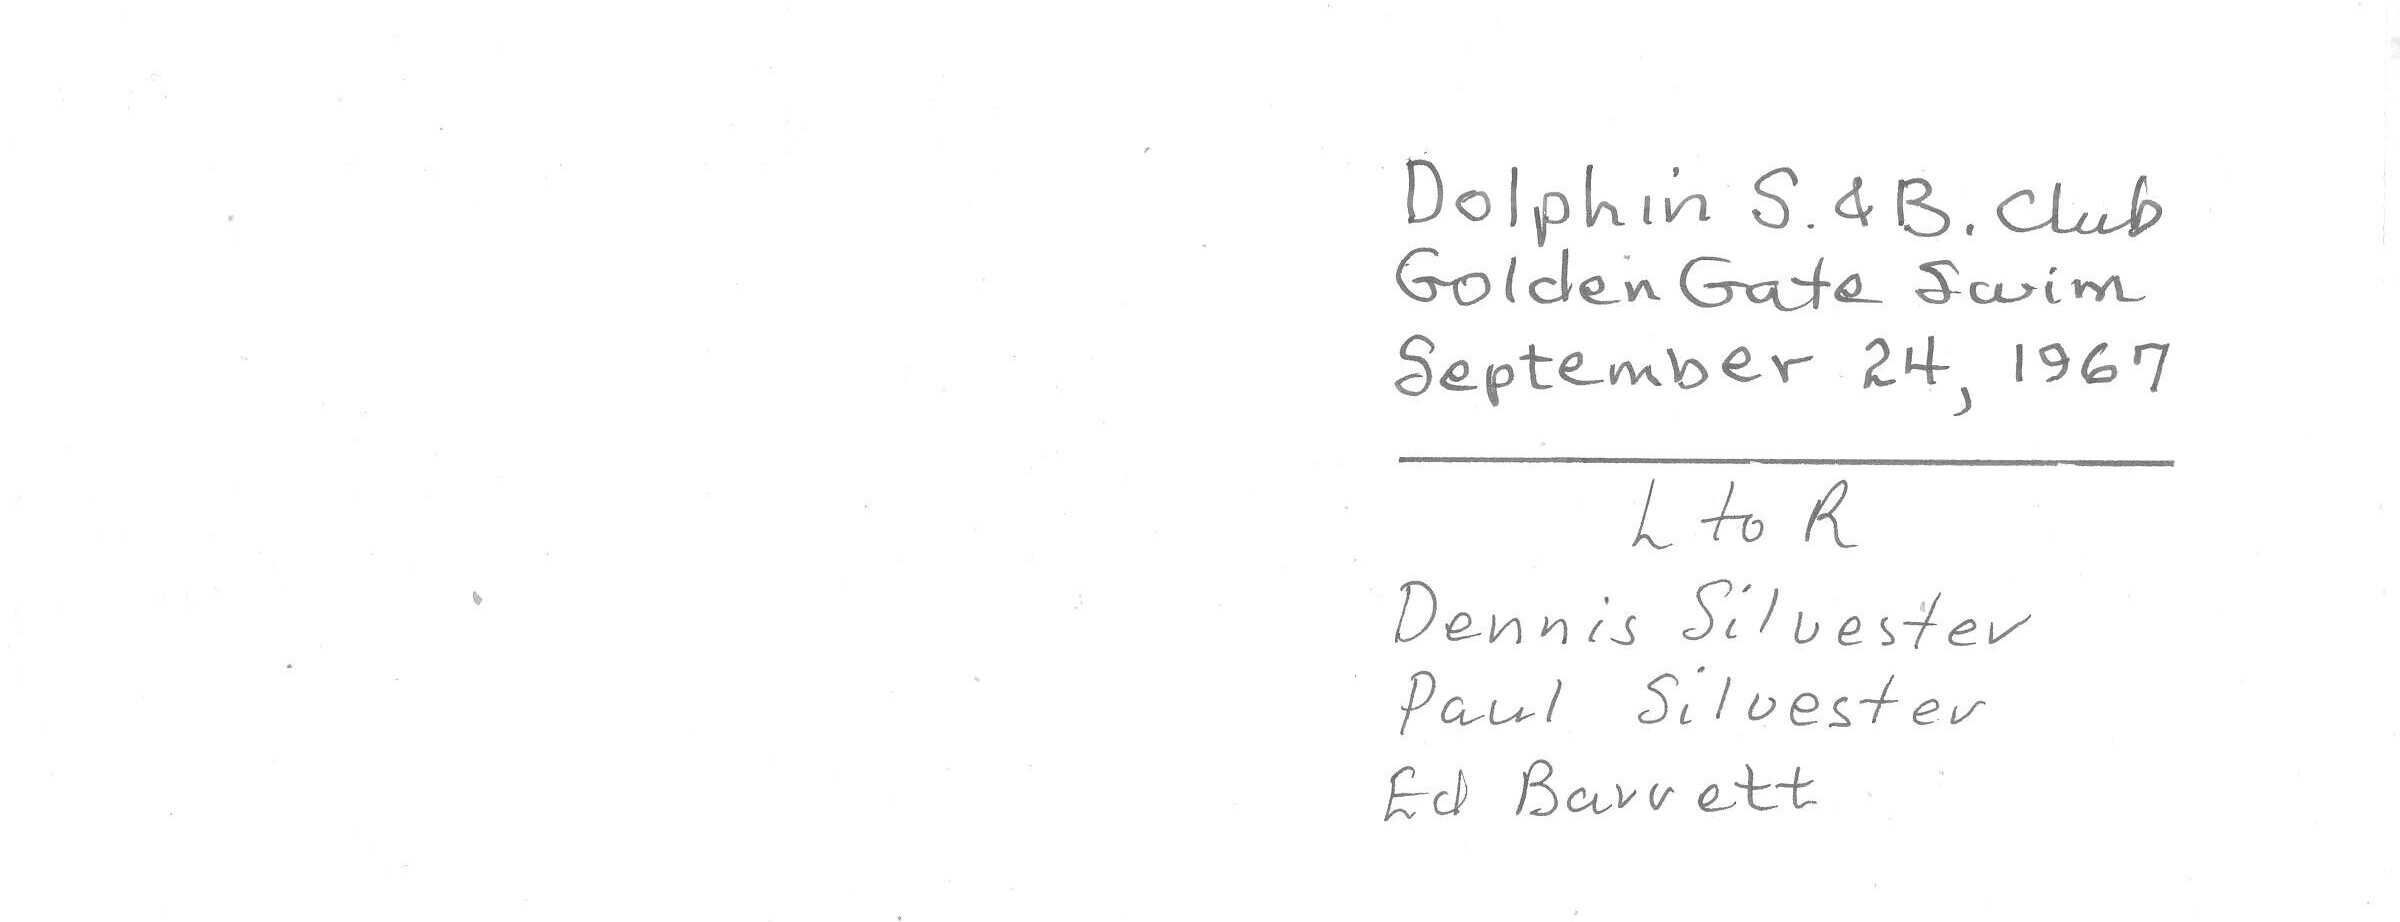 Dolphin S. & B. Club
Golden Gate Swim
September 24, 1967
L to R
Dennis Silvester
Paul Silvester
Ed Barrett